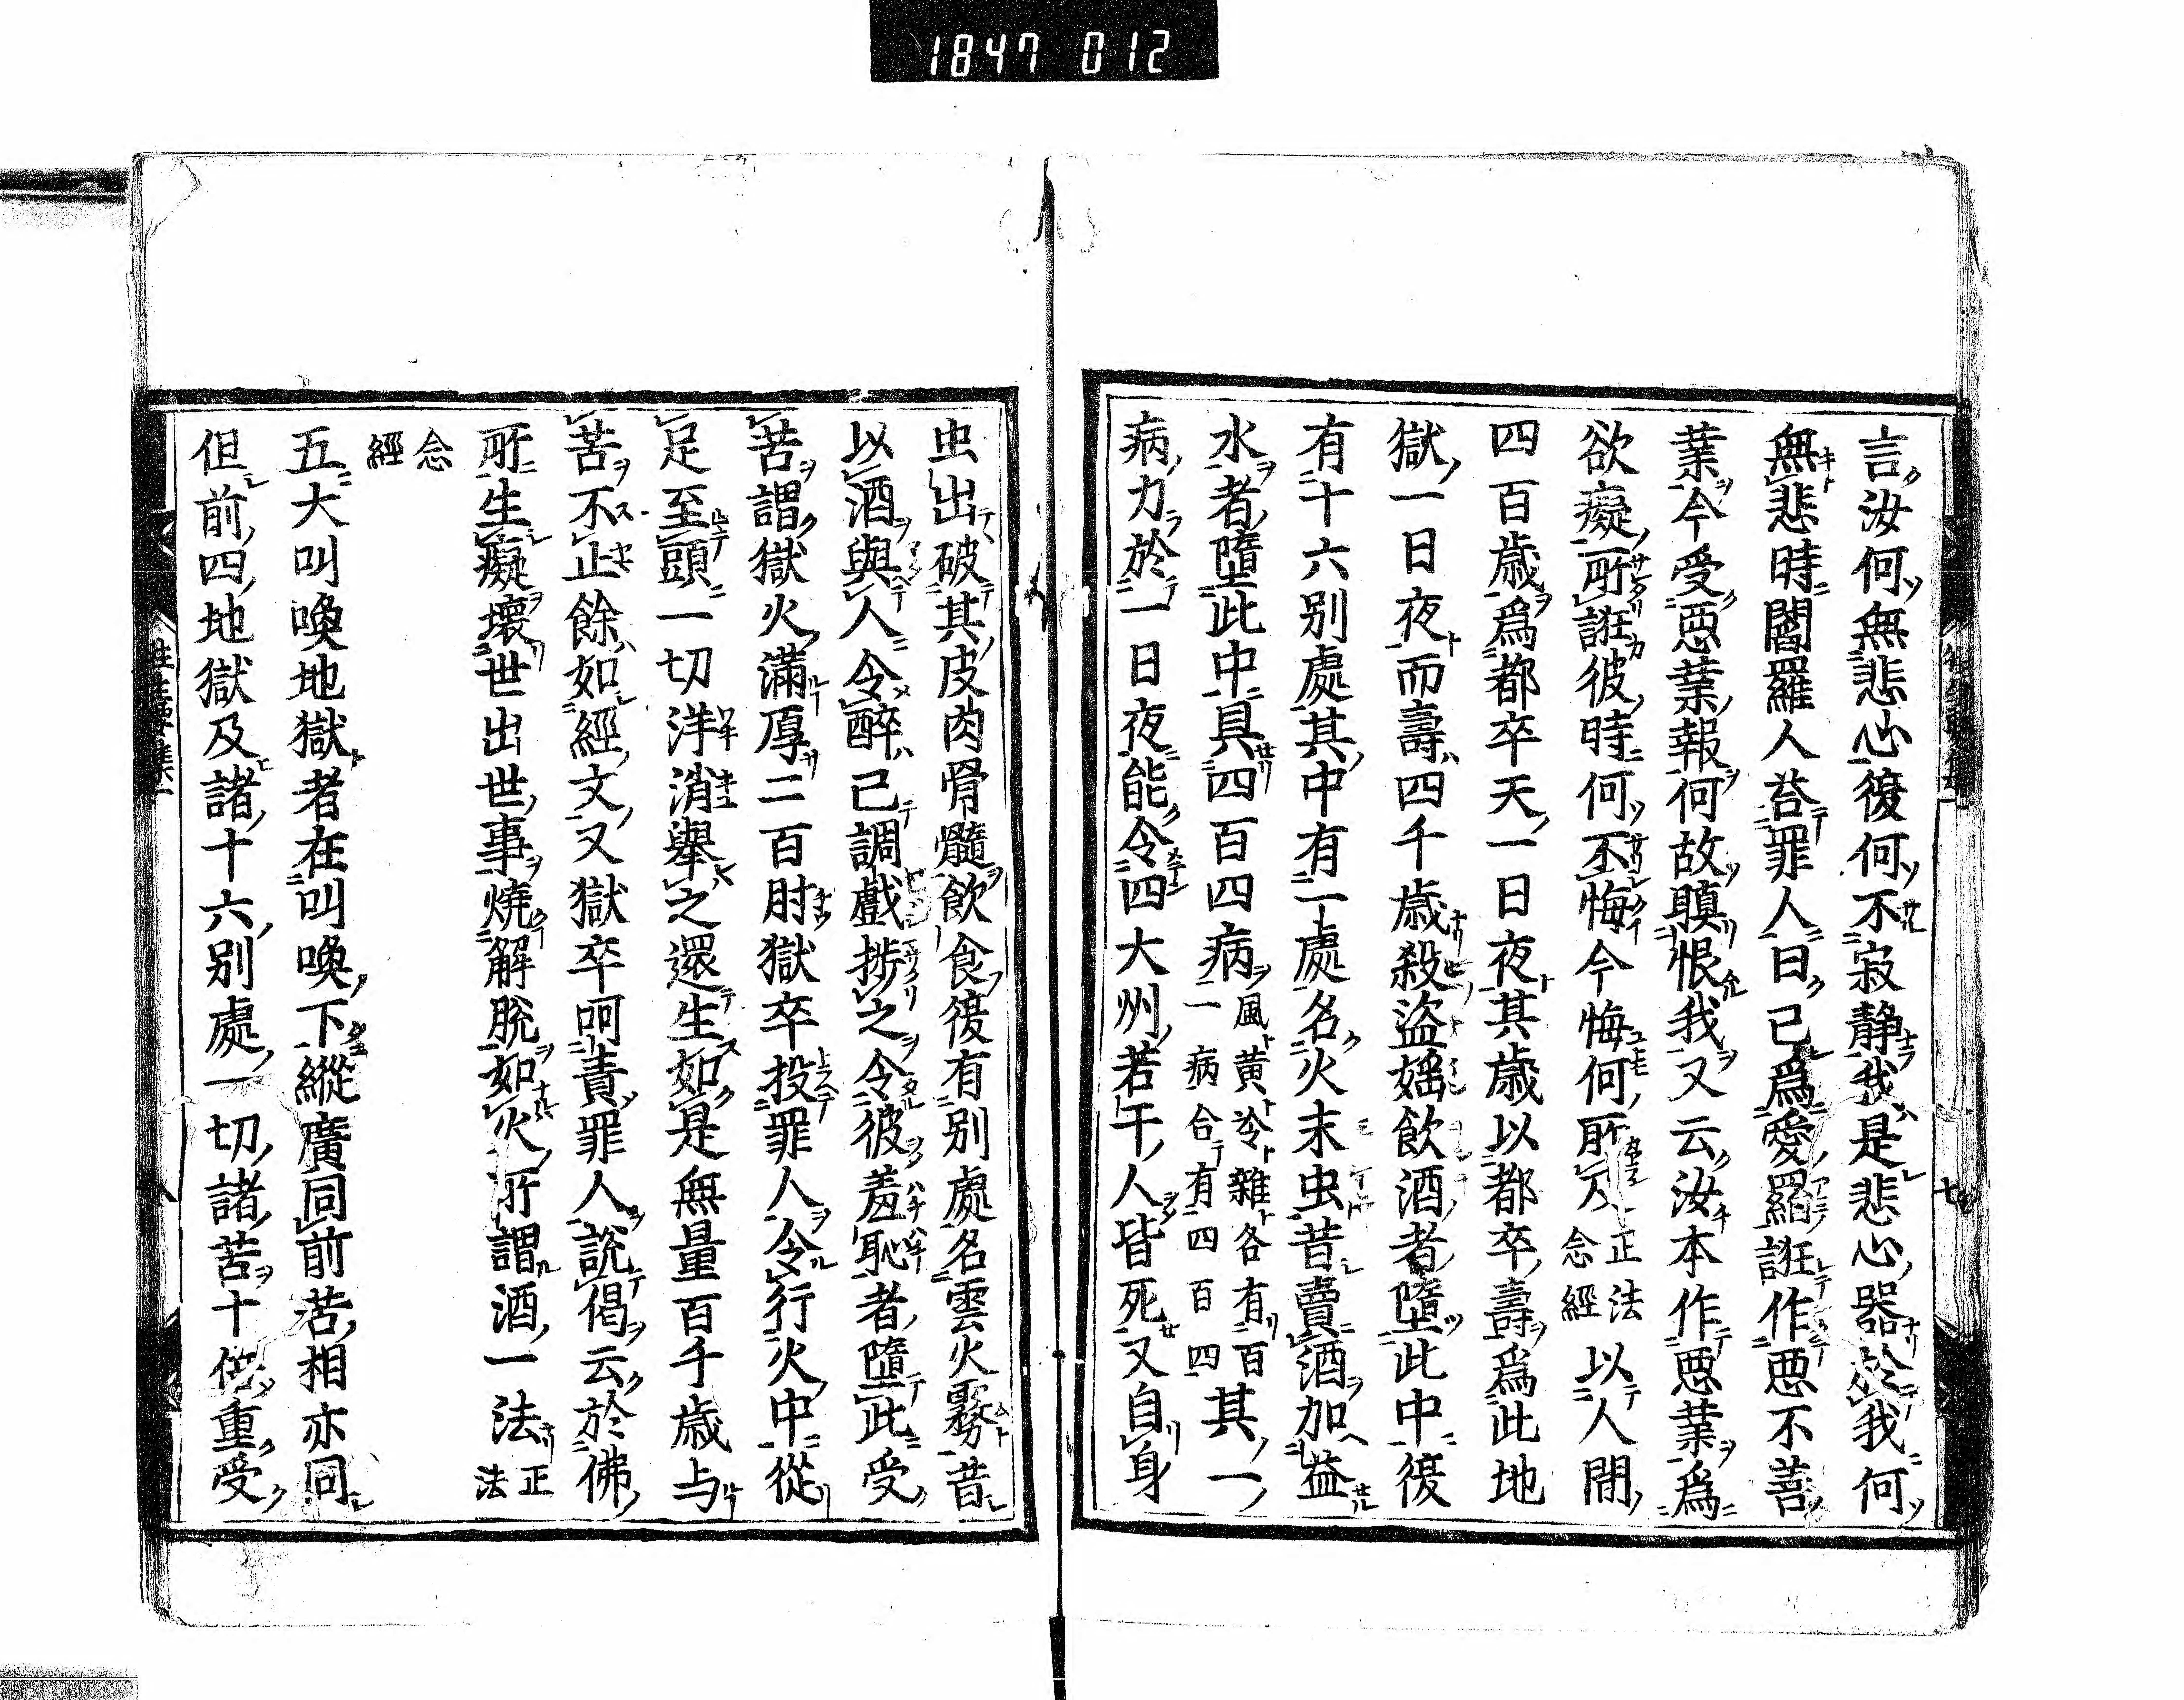 1847 012
言汝何無悲心復何不寂静我是悲心器於我何
無悲時閻羅人荅罪人曰已爲愛羂誑作悪不善
業今受悪業報何故瞋恨我又云汝本作悪業爲
欲癡所誑彼時何不悔今悔何所及正法念經以人間
四百歳爲都卒天一日夜其歳以都卒壽爲此地
獄一日夜而壽四千歳殺盗婬飲酒者墮此中復
有十六別處其中有一處名火末虫昔賣酒加益
水者墮此中具四百四病風黄冷雜各有百一病合有四百四其一
病力於一日夜能令四大州若干人皆死又自身
虫出破其皮肉骨髓飲食復有別處名雲火霧昔
以酒與人令醉已調戲捗之令彼羞恥者墮此受
苦謂獄火滿厚二百肘獄卒投罪人令行火中從
足至頭一切洋消擧之還生如是無量百千歳与
苦不止餘如經文又獄卒呵責罪人說偈云於佛
所生癡壞世出世事燒解脫如火所謂酒一法正法
念經
五大叫喚地獄者在叫喚下縱廣同前苦相亦同
但前四地獄及諸十六別處一切諸苦十倍重受